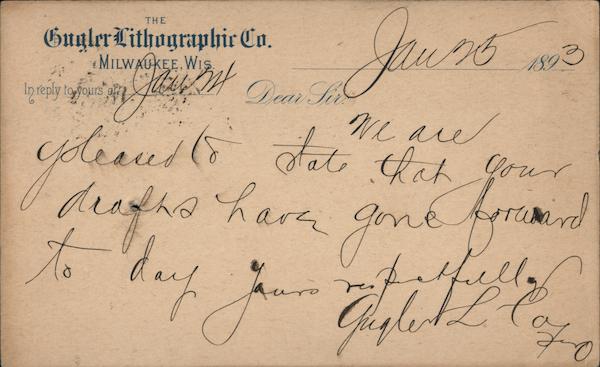 THE
Gugler Lithographic Co.
MILWAUKEE, WIS. Jan 25 1893
In reply to yours of Jan 24 Dear Sir:
We are
pleased to state that your
drafts have gone forward
to day yours respectfully
Gugler L. Co